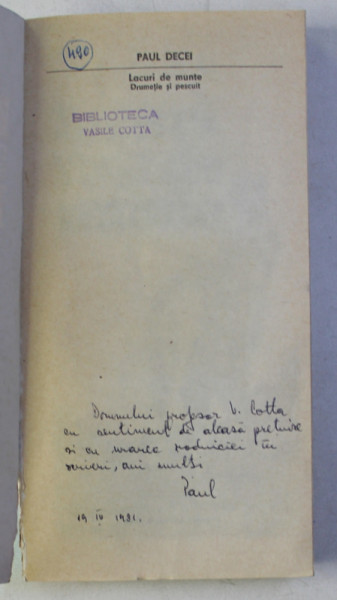 490
PAUL DECEI
Lacuri de munte
Drumeție și pescuit
BIBLIOTECA
VASILE COTTA
Domnului profesor V. Cotta
cu sentiment de aleasă prețuire
și cu urarea rodniciei în
scrieri, ani mulți
Paul
19 IV 1981.